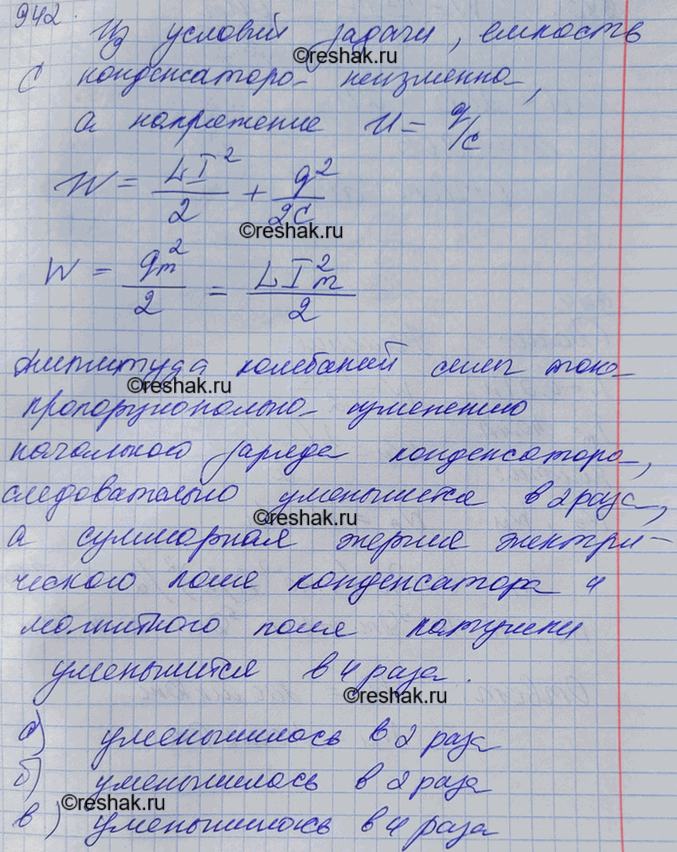 942.
Из условий задачи, емкость
©reshak.ru
С конденсатора неизменна,
а напряжение U = q/C
W = LI²/2 + q²/2C
©reshak.ru
W = qm²/2 = LI²m/2
Амплитуда колебаний силы тока
©reshak.ru
пропорциональна изменению
начального заряда конденсатора,
следовательно уменьшится в 2 раза,
©reshak.ru
а суммарная энергия электри-
ческого поля конденсатора и
магнитного поля катушки
уменьшится в 4 раза.
©reshak.ru
а) уменьшилось в 2 раза
б) уменьшилось в 2 раза
©reshak.ru
в) уменьшилось в 4 раза